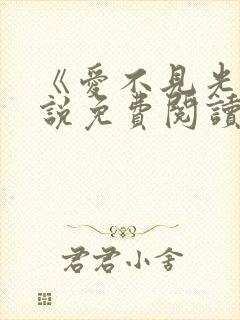 《愛不見光
說免費閱讀
君君小舍